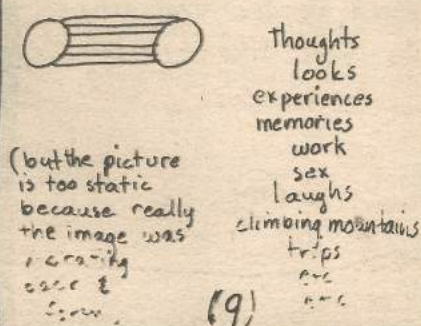 thoughts
looks
experiences
memories
work
sex
laughs
climbing mountains
trips
etc
etc
(but the picture
is too static
because really
the image was
(9)